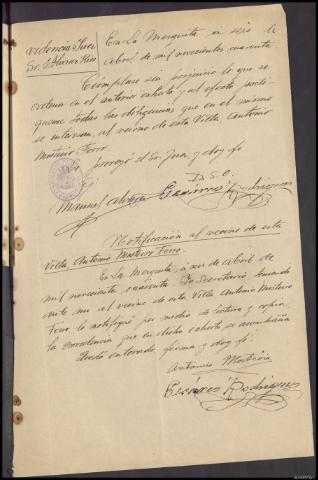 Providencia Juez
Sr. Alvarez Rios
En La Mezquita, a seis de
Abril de mil novecientos cuarenta
Cúmplase sin perjuicio lo que se
ordena en el anterior exhorto y al efecto practi-
quense todas las diligencias que en el mismo
se interesan, al vecino de esta Villa, Antonio
Monteiro Ferro.
Lo mandó el Sr. Juez, doy fé
D. S. O.
Manuel Alvarez Rodriguez
Notificación al vecino de esta
Villa Antonio Monteiro Ferro.
En La Mezquita, á seis de Abril de
mil novecientos cuarenta. Yo Secretario, teniendo
ante mi al vecino de esta Villa Antonio Monteiro
Ferro le notifiqué por medio de lectura y copia,
la providencia que en dicho exhorto se acompaña
Quedó enterado, firma y doy fé.
Antonio Monteiro
Rodriguez